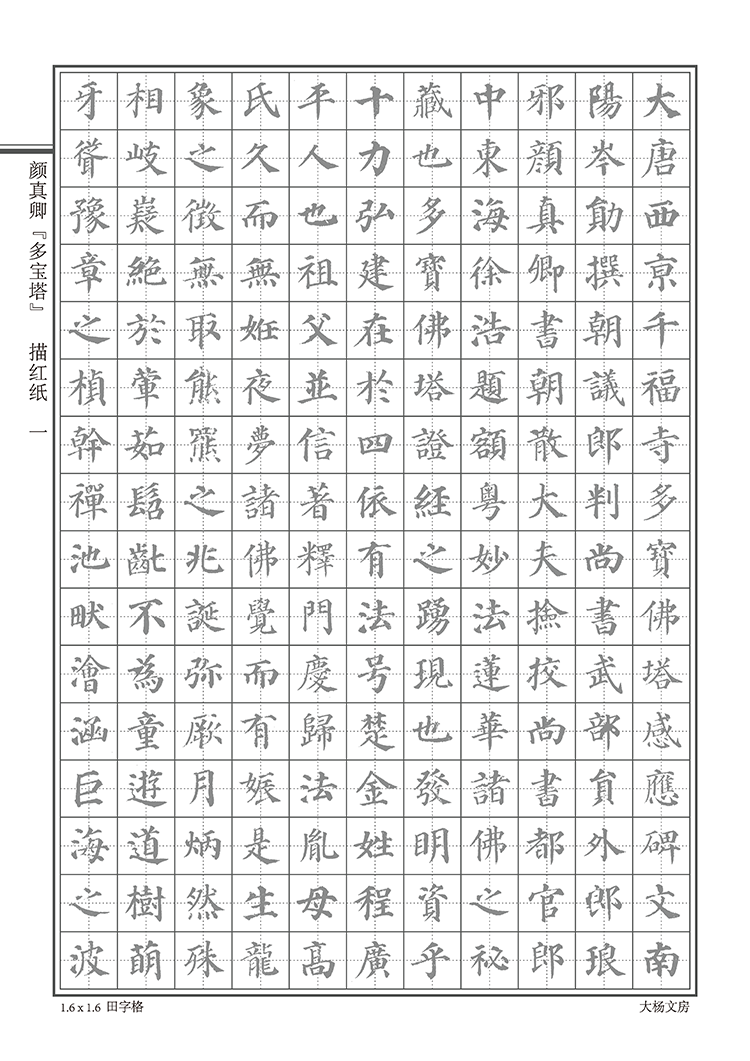 大唐西亰千福寺多寶佛塔感應碑文南
陽岑勛撰朝議郎判尚書武部貟外郎琅
邪顏真卿書朝散大夫撿挍尚書都官郎
中東海徐浩題額粵妙法蓮華諸佛之祕
藏也多寶佛塔證經之踴現也發明資乎
十力弘建在於四依有法号楚金姓程廣
平人也祖父並信著釋門慶歸法胤母髙
氏久而無姙夜夢諸佛覺而有娠是生龍
象之徵無取熊羆之兆誕弥厥月炳然殊
相岐嶷絕於葷茹髫齔不為童遊道樹萌
牙聳豫章之楨幹禪池畎澮涵巨海之波
颜真卿『多宝塔』 描红纸 一
1.6 x 1.6 田字格
大杨文房